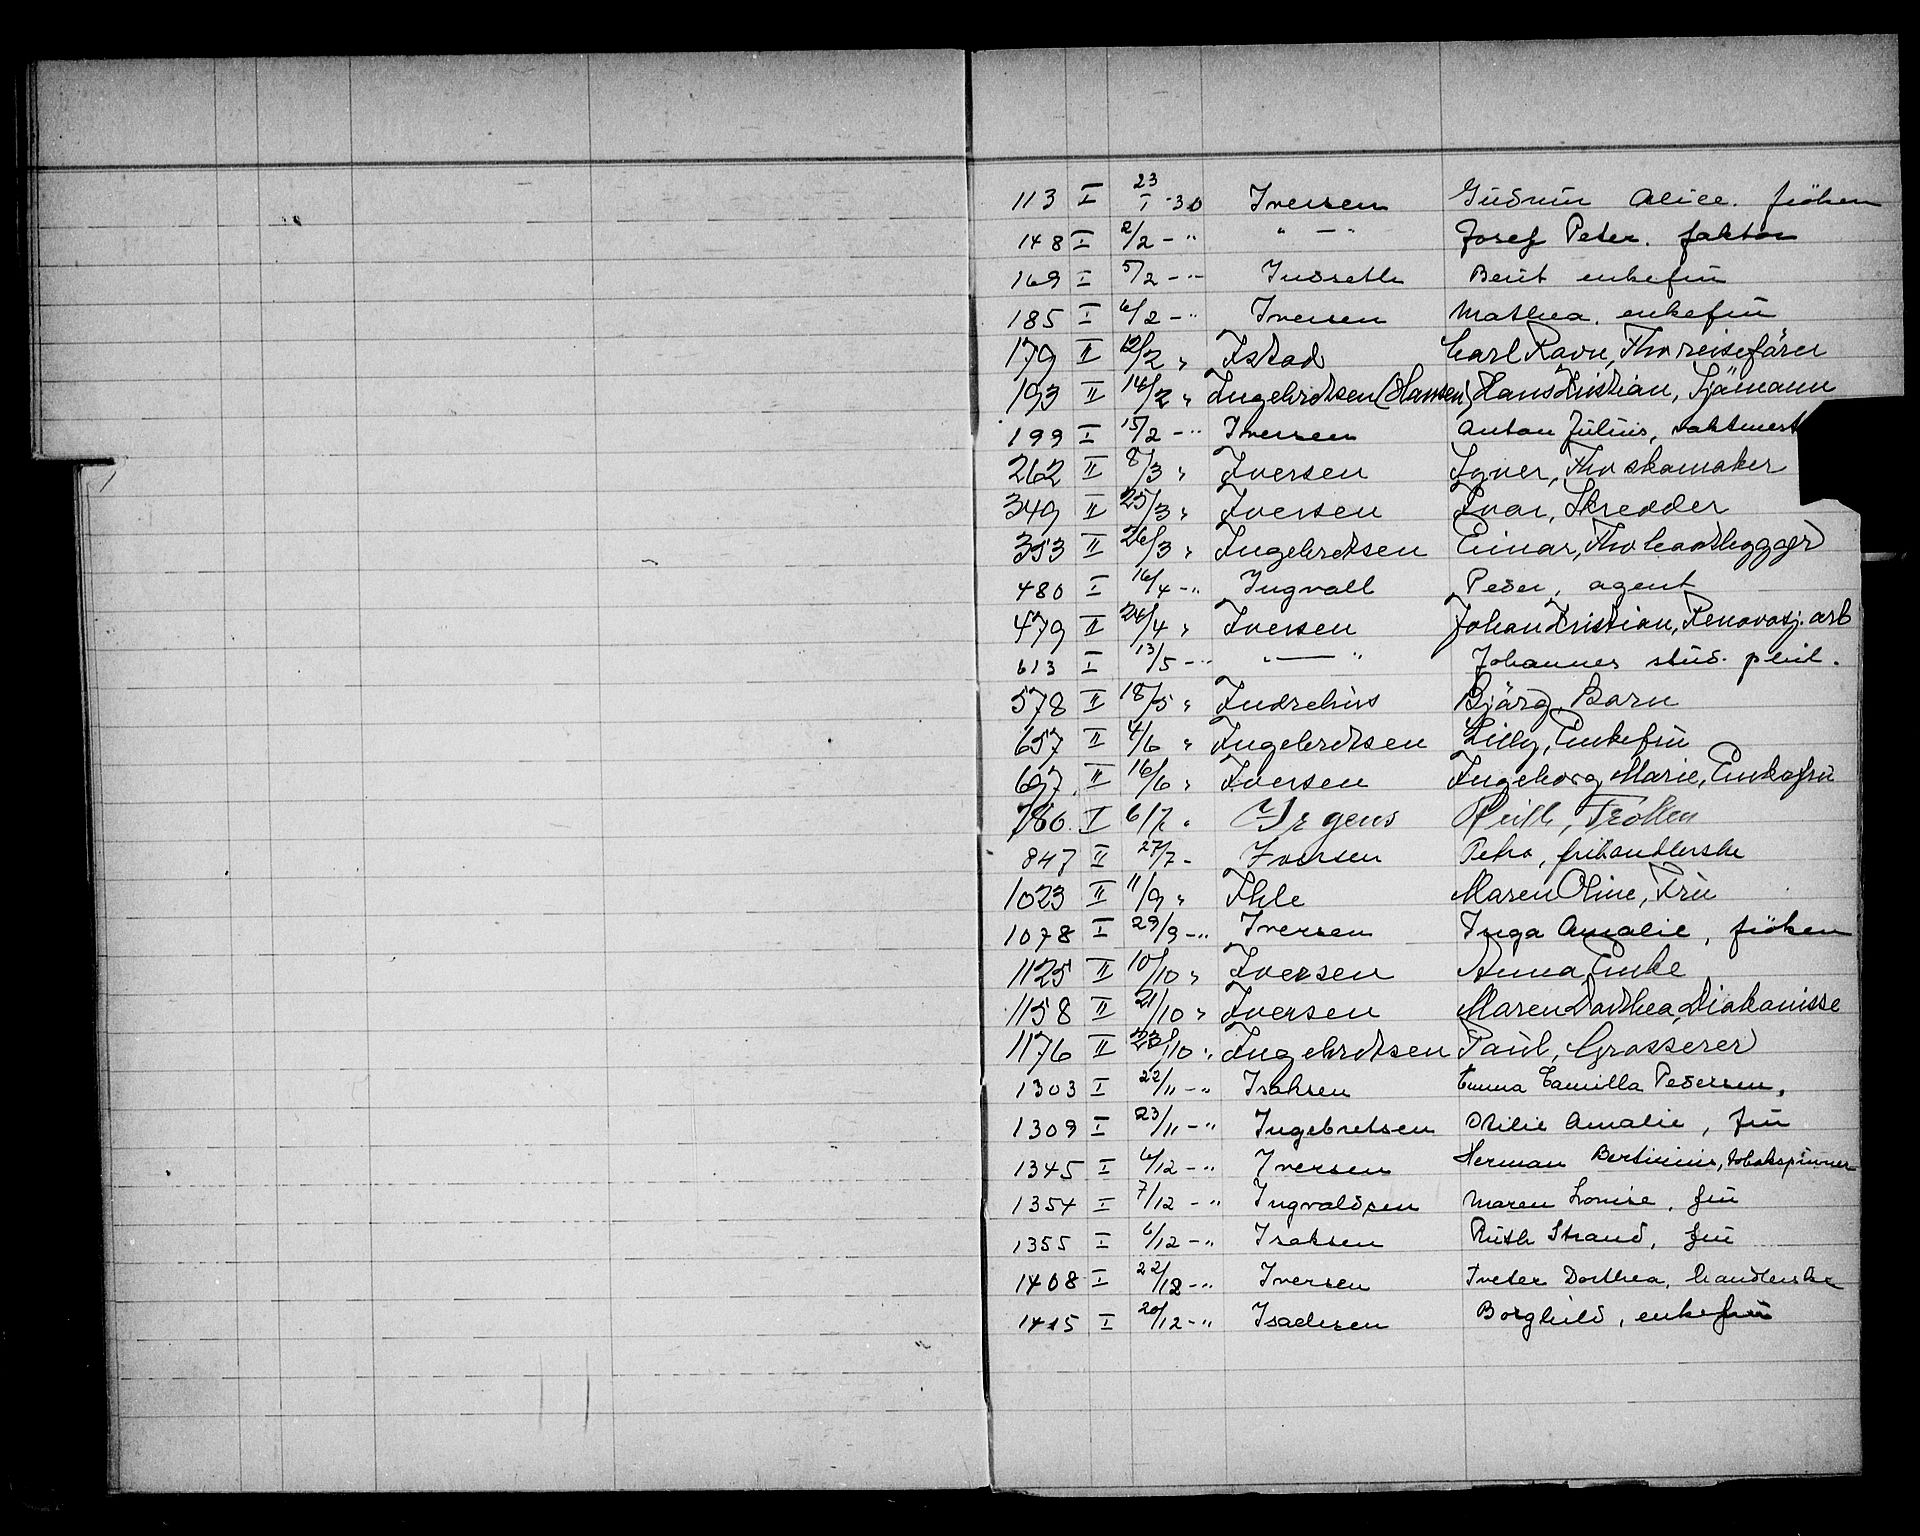 113 I 23/1 -30 Iversen Gudrun Alice. fröken
148 I 2/2 - " " — " Josef Peter. faktor
169 I 5/2 - " Indseth Berit enkefru
185 I 6/2 - " Iversen Mathea. enkefru
179 II 12/2 " Istad Carl Ravn, Fhv reisefører
193 II 14/2 " Ingebretsen (Hansen) Hans Kristian, Sjømann
199 I 15/2 - " Iversen Anton Julius, vaktmest
262 II 8/3 " Iversen Iver, Fhv skomaker
349 II 25/3 " Iversen Ivar, Skredder
353 II 26/3 " Ingebretsen Einar, Fhv
480 I 16/4 - " Ingvall Peder, agent
479 II 24/4 " Iversen Johan Kristian, Renovasj. arb
613 I 13/5 - " " — " Johannes stud. phil.
578 II 18/5 " Indrehus Bjørg, Barn
657 II 4/6 " Ingebretsen Lilly, Enkefru
697 II 16/6 " Iversen Ingeborg Marie, Enkefru
780 I 6/7 " Irgens Frøken
847 II 27/7 - Iversen Petra, frihandlerske
1023 II 11/9 " Ihle Maren Oline, Fru
1078 I 29/9 - " Iversen Inga Amalie, fröken
1125 II 10/10 " Iversen Anna, Enke
1158 II 21/10 " Iversen Maren Dorthea, Diakonisse
1176 II 23/10 " Ingebretsen Paul, Grosserer
1303 I 22/11 - " Isaksen Emma Camilla Pedersen,
1309 I 23/11 - " Ingebretsen Otilie Amalie, fru
1345 I 6/12 - " Iversen Herman Bertinius, tobakspinner
1354 I 7/12 - " Ingvaldsen Maren Lovise, fru
1355 I 6/12 - " Isaksen Ruth Strand, fru
1408 I 22/12 - " Iversen Dorthea, handlerske
1415 I 20/12 - " Isachsen Borghild, enkefru